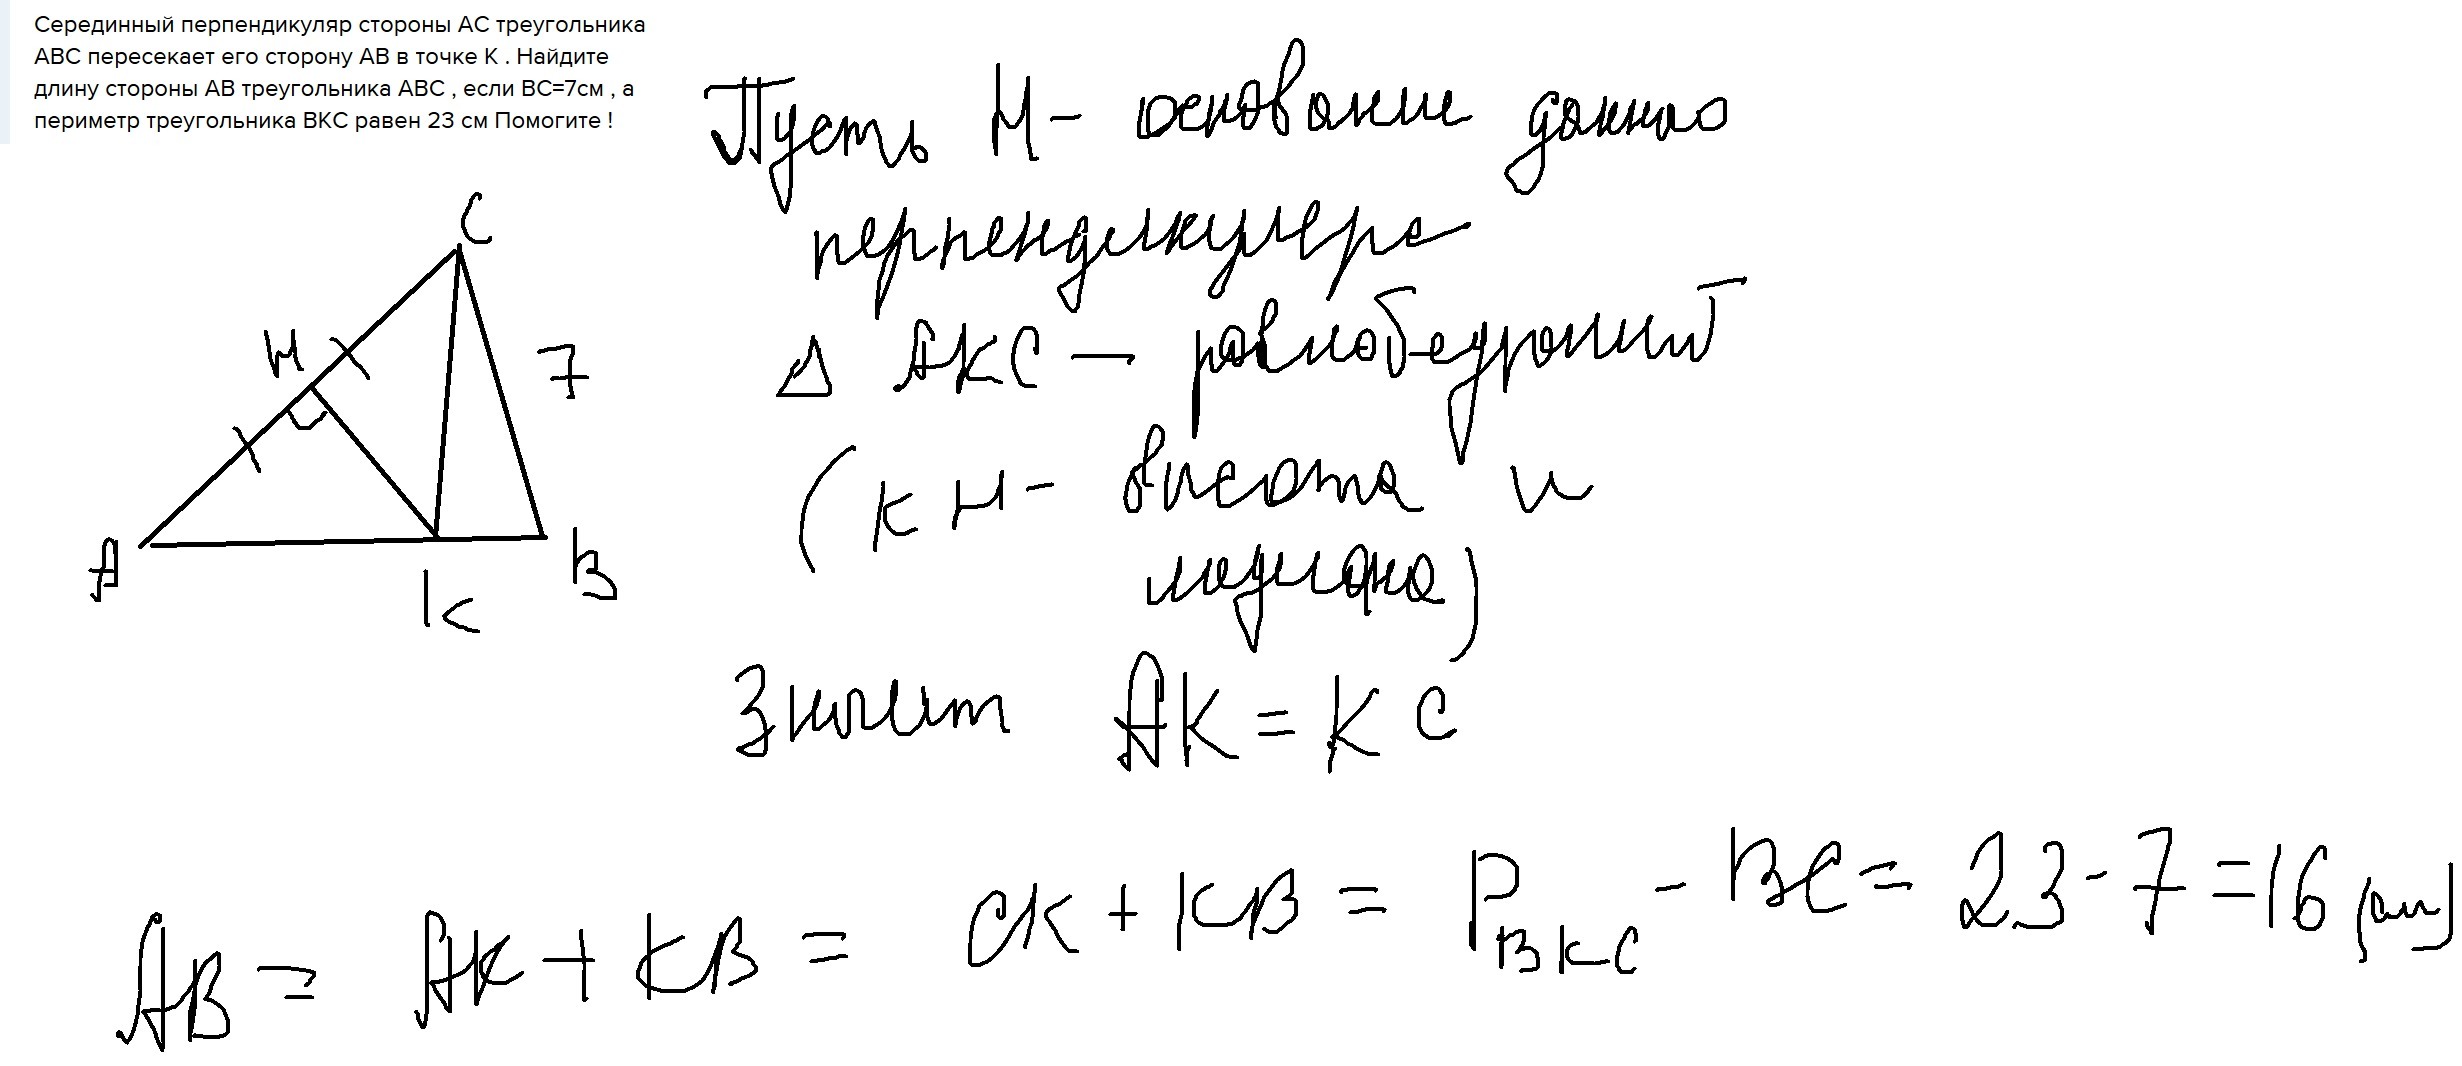 Серединный перпендикуляр стороны АС треугольника
АВС пересекает его сторону АВ в точке К . Найдите
длину стороны АВ треугольника АВС , если ВС=7см , а
периметр треугольника ВКС равен 23 см Помогите !
Пусть Н - основание данного
перпендикуляра
Δ АКС — равнобедренный
(КН - высота и
медиана)
Значит АК = КС
C
H
7
A
K
B
АВ = АК + КВ = СК + КВ = P ВКС - ВС = 23 - 7 = 16 (см)